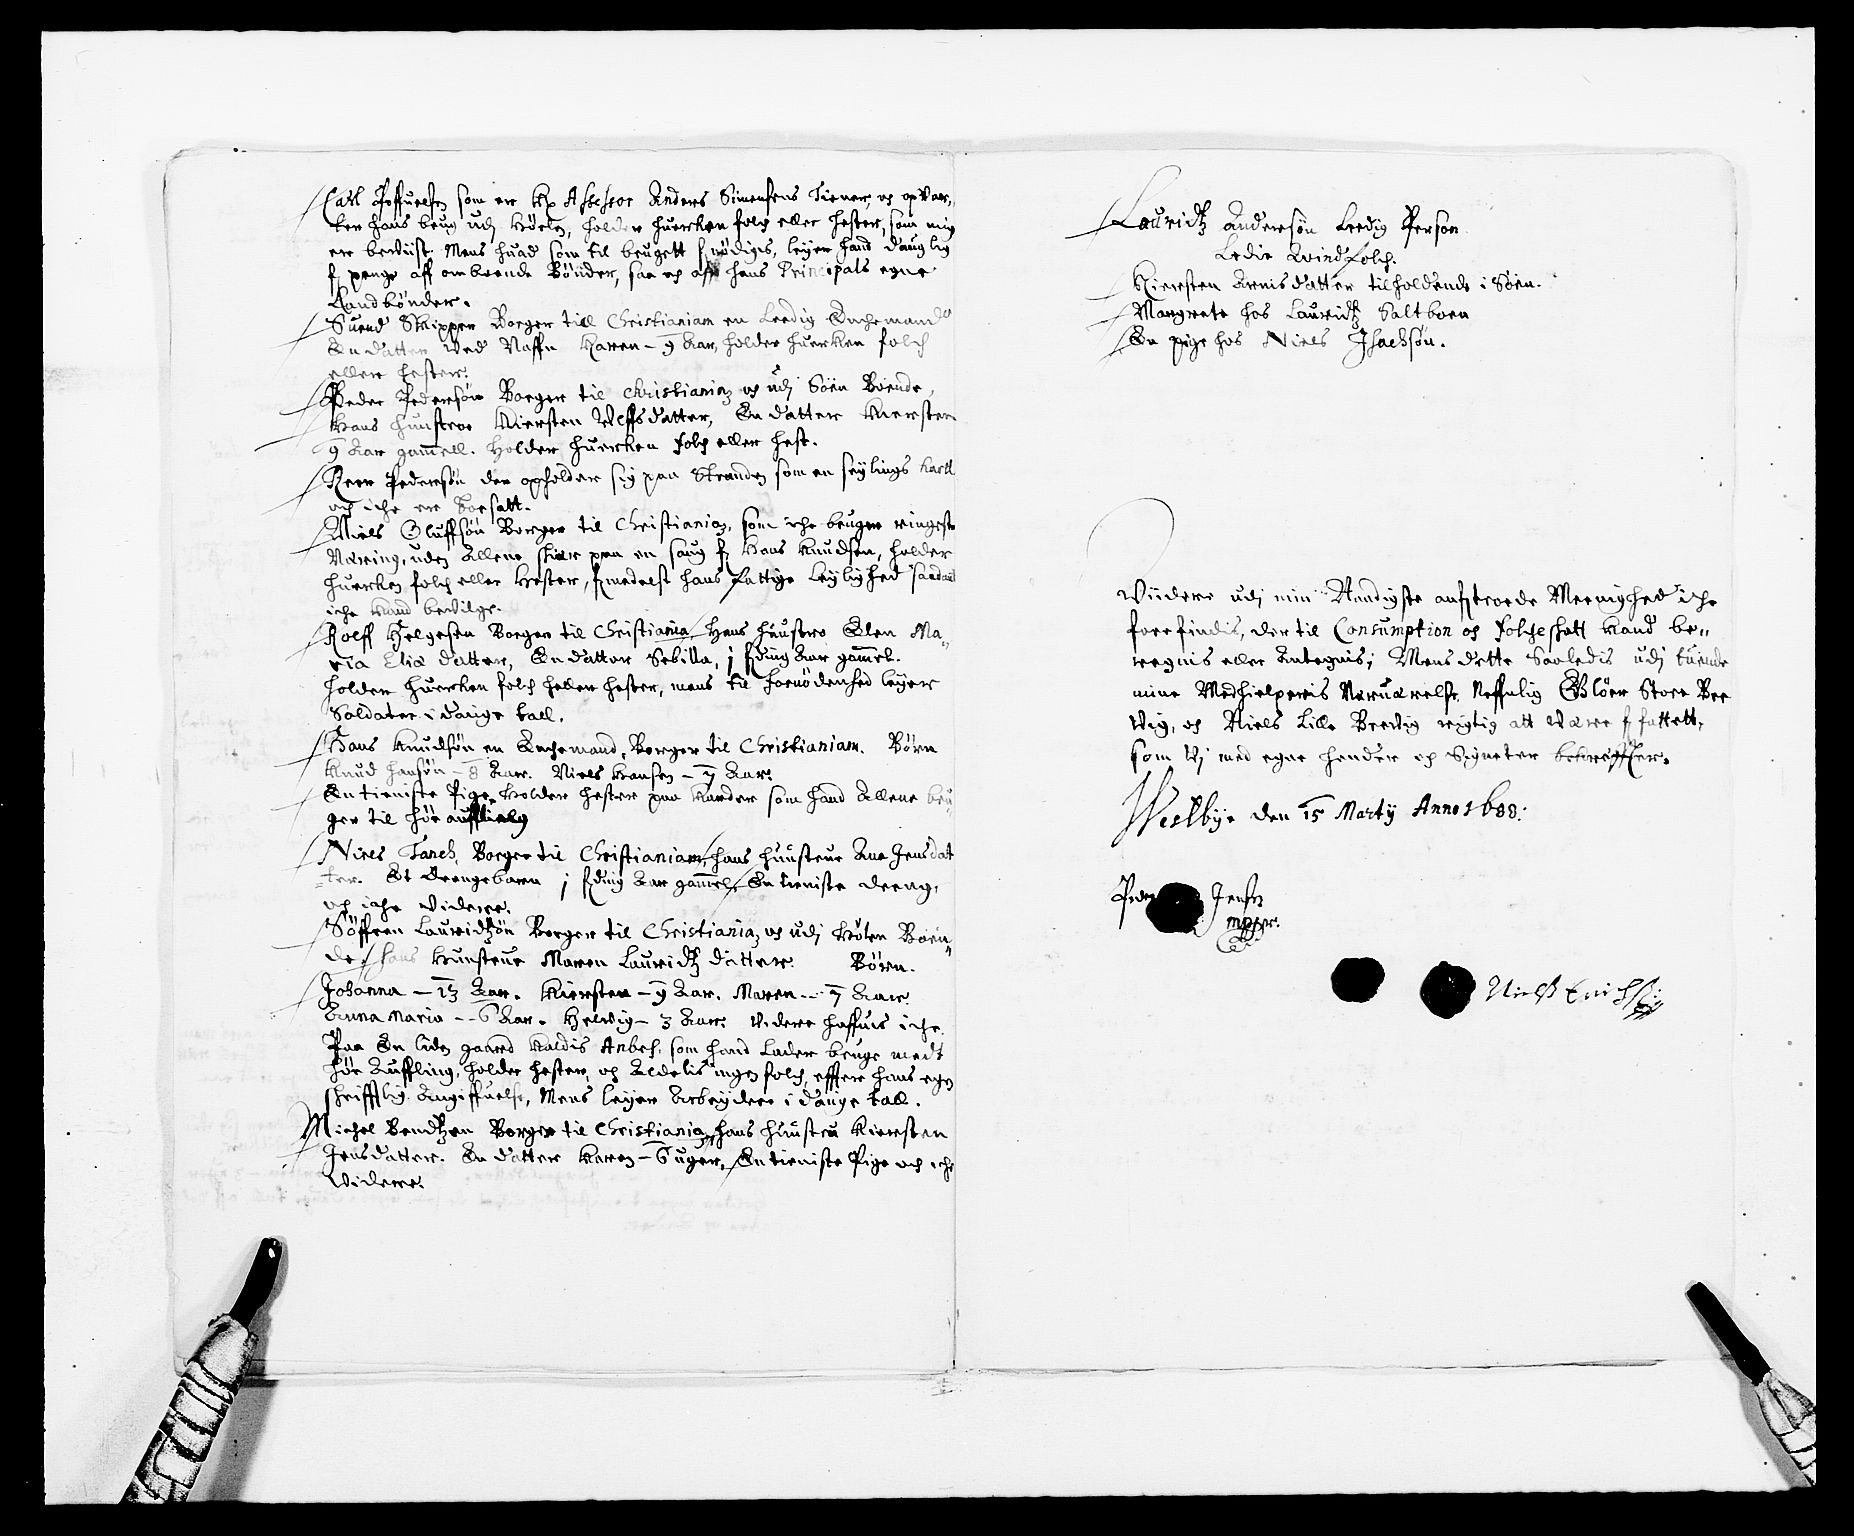 Carl som er Kp Assessor Anders Simensens Tiener, och opvar-
ter hans brug udj holder huercken folch eller hester, som mig
er bewiust. Mens huad som til brugett leyer hand daug lig
penge aff omboende Bönder, saa och aff hans Principals egne
Landbönder.
Suend Skipper Borger till Christianiam en Leedig Enchemand
En datter ved Naffn Karen - 9 Aar, holder huercken folch
eller hester.
Peder Pedersön Borger til Christiania, och udj Söen Boende,
Hans hunstroe Kiersten datter, En datter Kiersten
9 Aar gamell. Holder huercken folch eller hest.
Peer Pedersön der opholder sig paa Stranden som en seylings Karll
och iche er Boesatt.
Niels Oluffsön Borger til Christiania, som iche bruger ringeste
Næring, uden Allene skiær paa en saug Hans Knudsen, holder
huercken folch eller Hester, formedelst hans fattige Leylighed saadant
iche Kand bevilge.
Rolff Helgesen Borger til Christiania Hans huustro Elen Ma-
ria Eliæ datter, En datter Sebilla, j Aar gamel.
holder huercken folch heller hester, mens til fornödenhed leyer
Soldater i dauge tall.
Hans Knudsön en Enchemand, Borger til Christianiam. Börn
Knud hansön - 8 Aar. Niels Hansen - 7 Aar.
En tieniste Pige, Holder hester paa som hand Allene bru-
ger til höe auffling
Niels Borger til Christianiam, hans huusteue Ane Jensdat
ter. Et Drengebarn j Aar gammel, En tieniste dreng,
och iche videre.
Söffren Lauridtzön Borger til Christiania, och udj Boen-
de, hans Hunsteue Maren Lauridtz datter. Börn.
Johanna - 13 Aar. Kiersten - 9 Aar. Maren - 7 Aar.
Anna Maria - 6 Aar. Helvig - 3 Aar. Videre haffuis iche.
Paa En liden gaard Kaldis som hand Lader bruge medt
höe Auffling, holder hester, och Aldelis ingen folch, effter hans egen
skrifftlig Angiffuelse, Mens leyer Arbeydere i dauge tall.
Michel Bendtzen Borger til Christiania, hans huustru Kiersten
Jensdatter. En datter Karen - 6 uger, En tieniste Pige och iche
Videre.
Lauridtz Andersön Leedig Person
Ledie Qvindfolch.
Kiersten Arnisdatter tilholdende i Söen.
Margrete hos Lauridtz Saltboen
En pige hos Niels Isachsön.
Viidere udj min Naadigste anfortroede Meenighed iche
forefindis, der til Consumption og folcheskatt Kand be-
regnis eller Antegnis; Mens dette Saaledis udj tuende
mine Medhielperis Nerværelse, Neffnlig Store Bre
vig, och Niels Lille Brevig rigtig att være forfattett,
som Vj med egne hender och Signeter bekreffter.
den 15 Marty Anno 1688.
Peder Jensen
mpper.
Niels